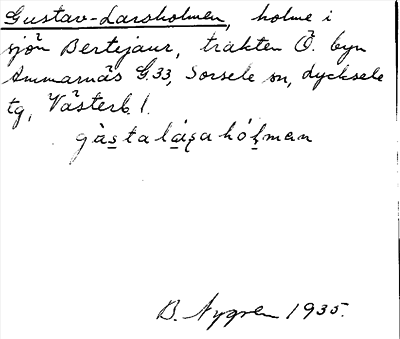 Gustav-Larsholmen, holme i
sjön Bertejaur, trakten Ö. byn
Ammarnäs G.33, Sorsele sn, Lycksele
tg, Västerb. l.
gàstalása hólman
B. Nygren 1935.